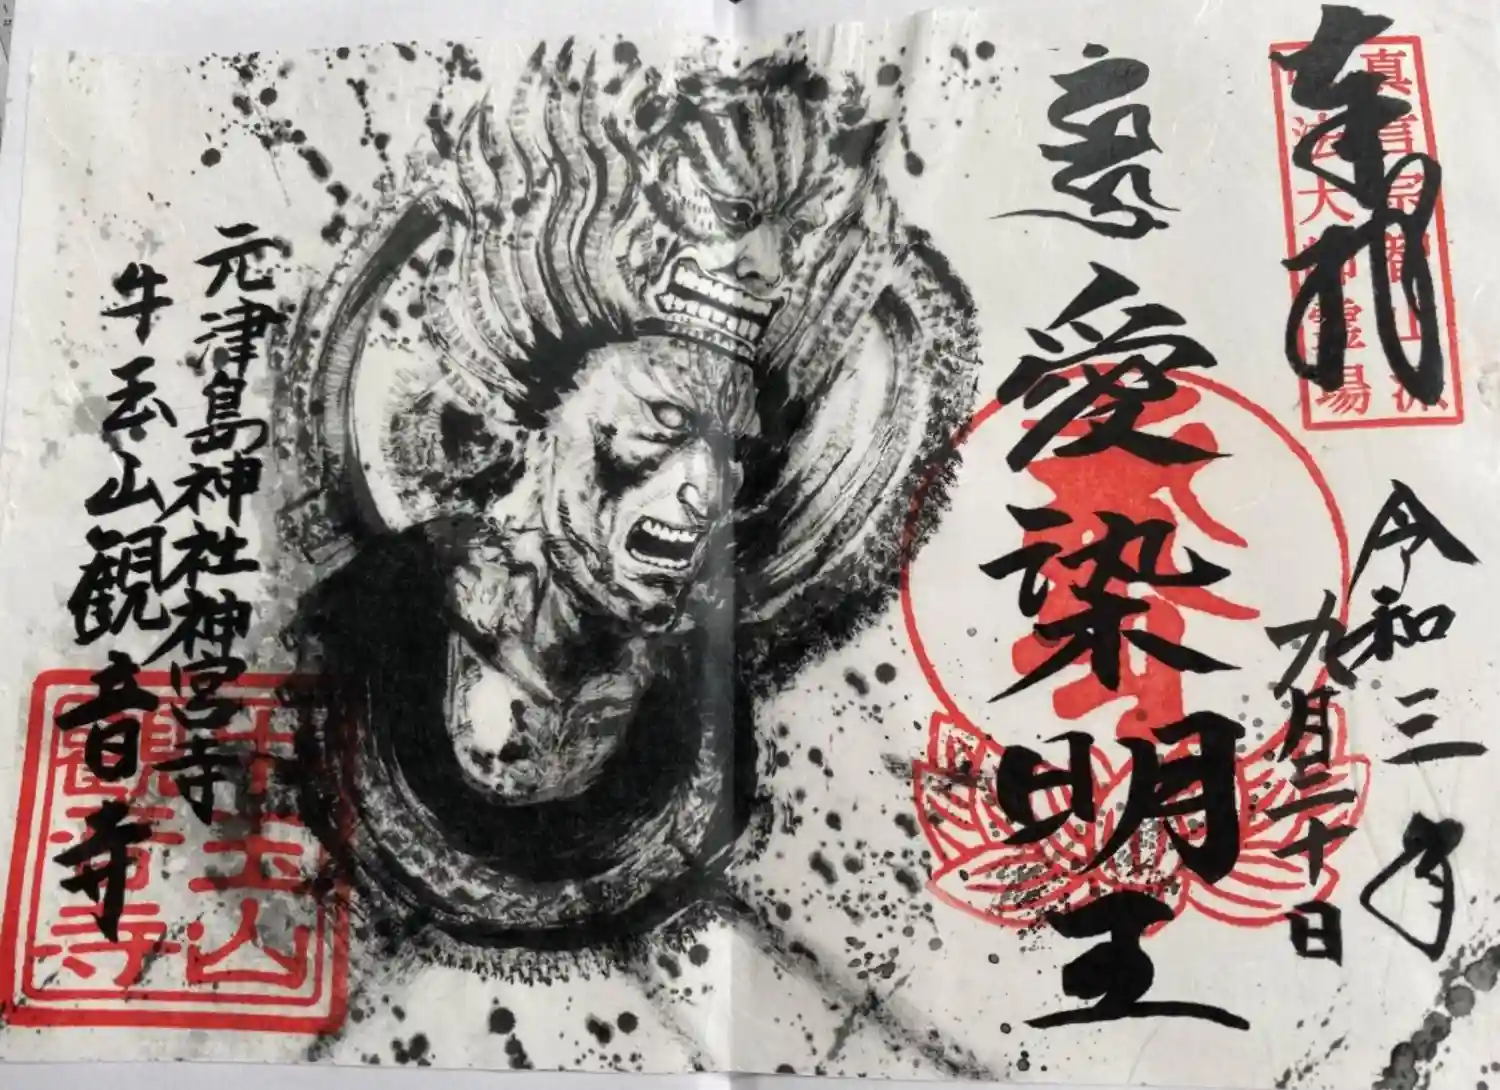 奉拝
真言宗智山派
弘法大師霊場
令和三年
九月二十日
愛染明王
元津島神社神宮寺
牛玉山観音寺
牛玉山
観音寺